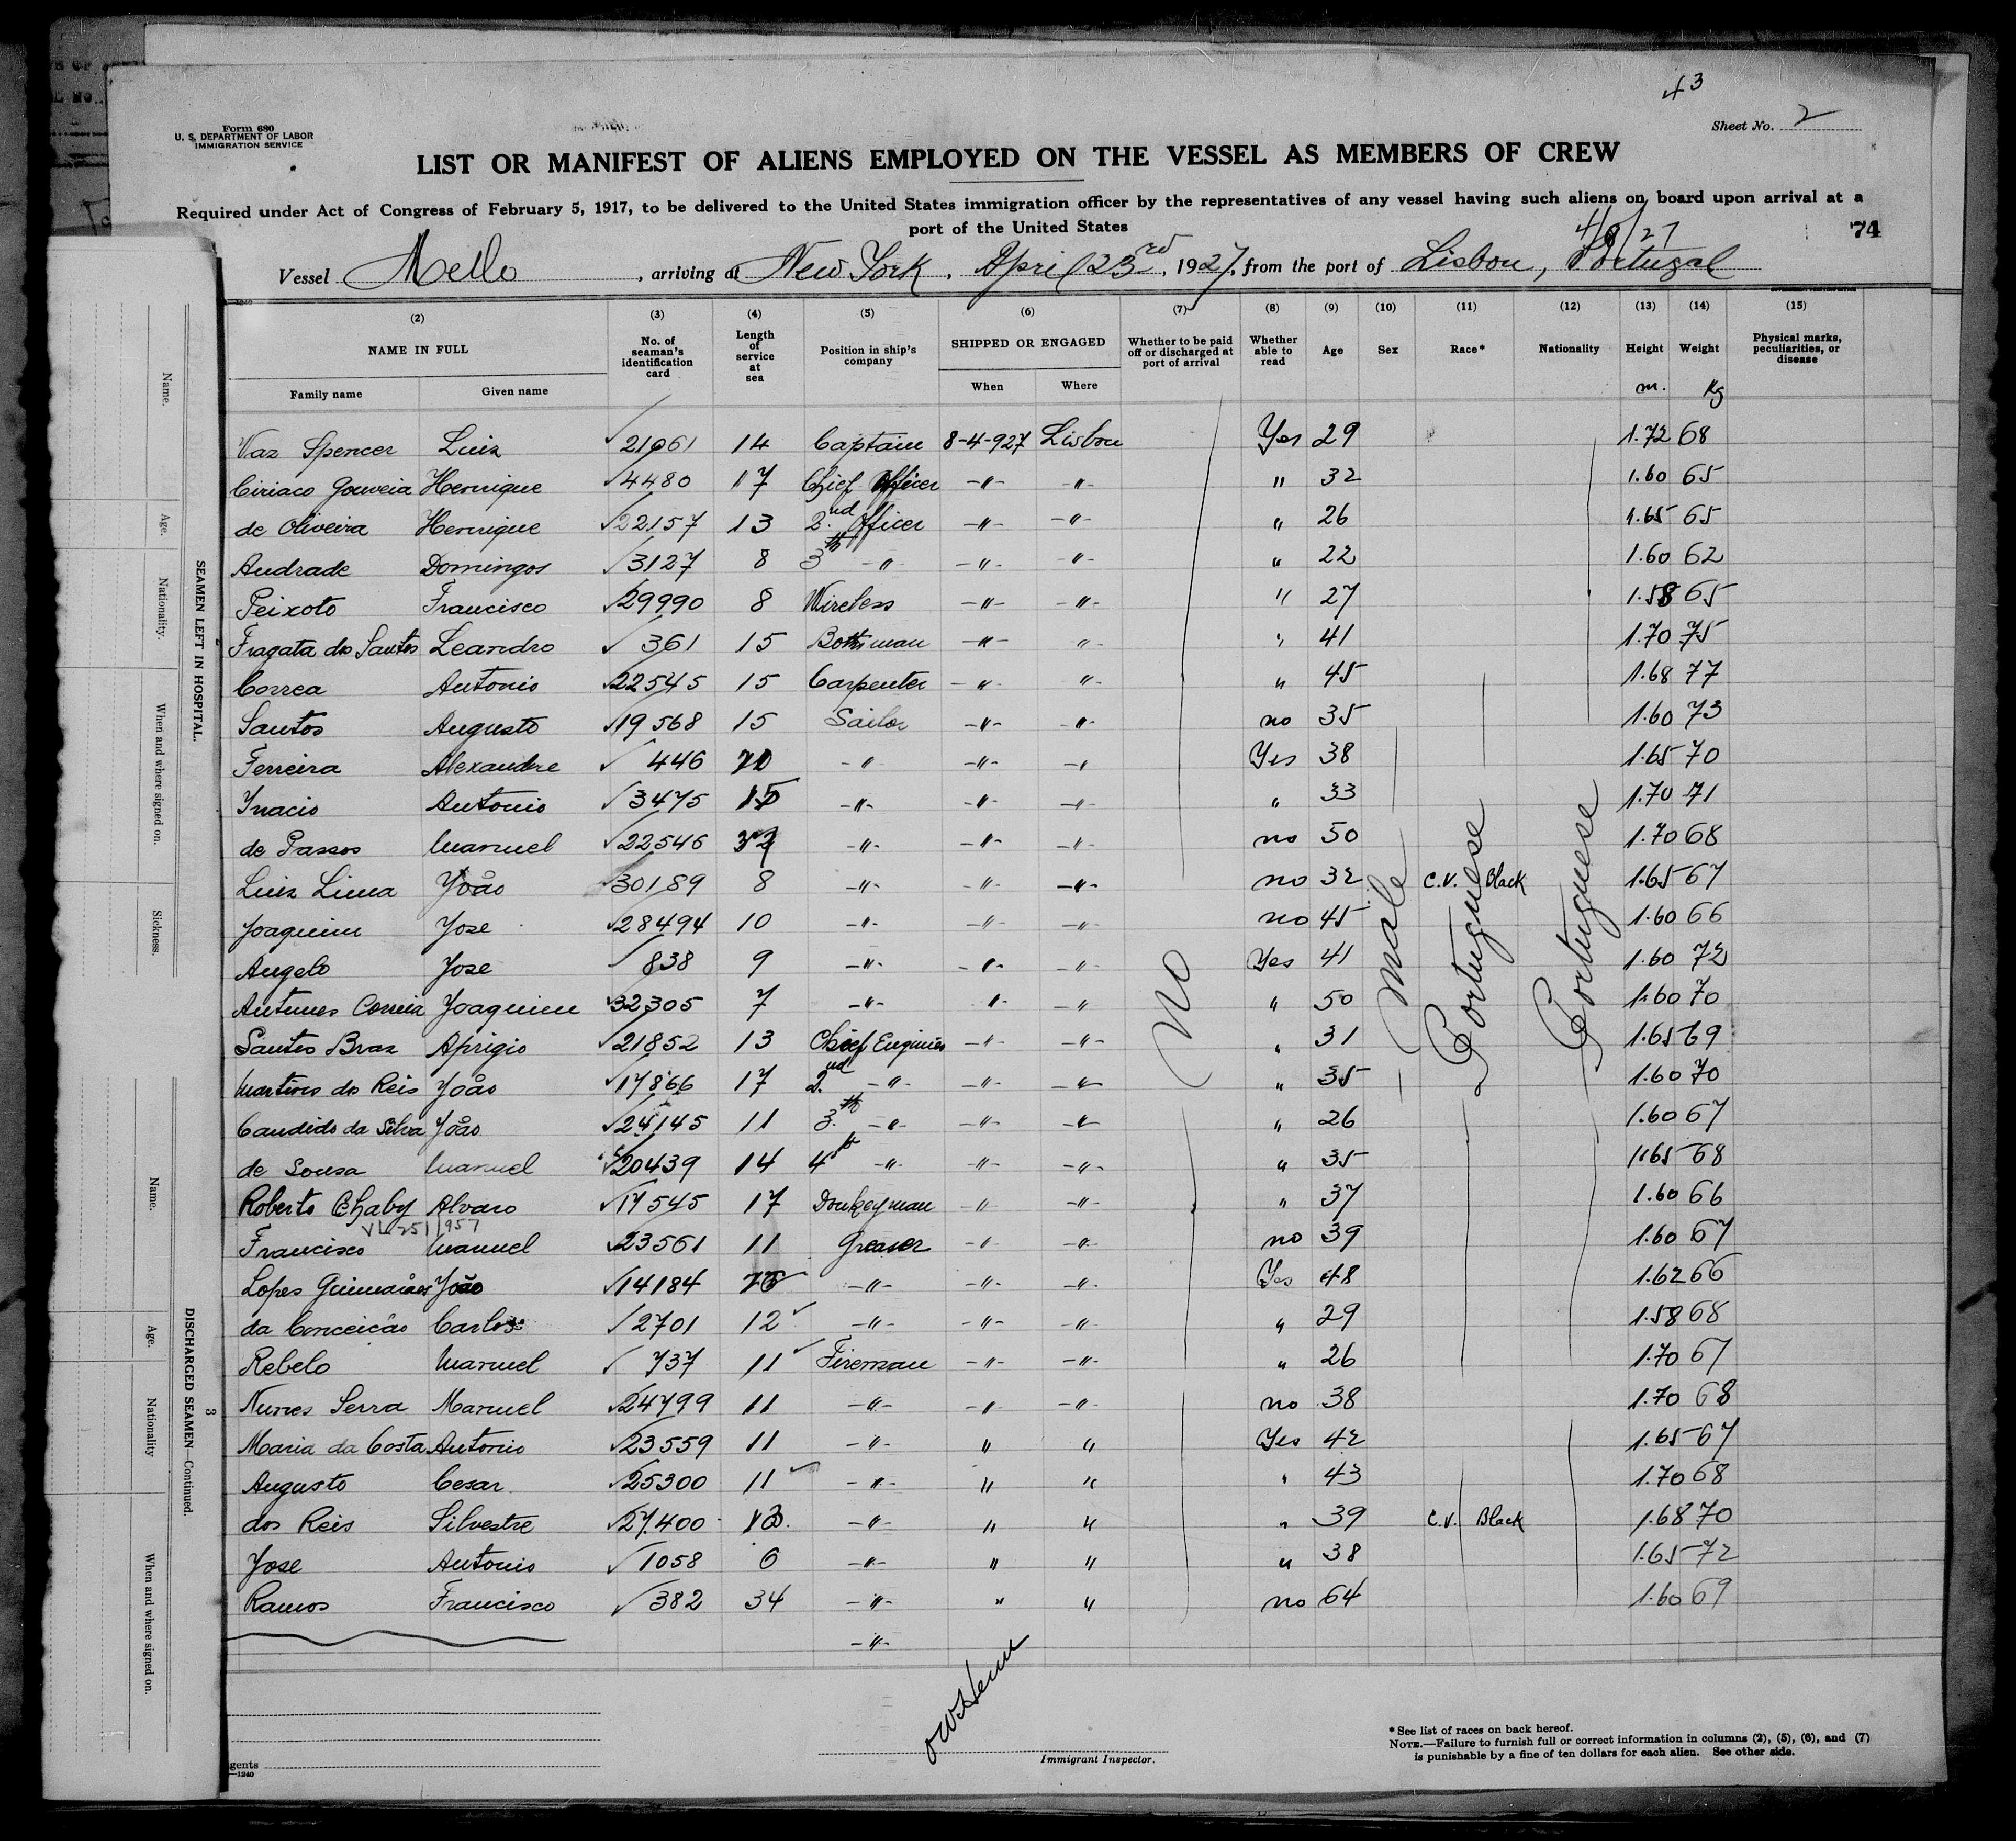 43
Form 680
U. S. DEPARTMENT OF LABOR
IMMIGRATION SERVICE
Sheet No. 2
LIST OR MANIFEST OF ALIENS EMPLOYED ON THE VESSEL AS MEMBERS OF CREW
Required under Act of Congress of February 5, 1917, to be delivered to the United States immigration officer by the representatives of any vessel having such aliens on board upon arrival at a
port of the United States
74
Vessel Mello, arriving at New York, April 23rd, 1927, from the port of Lisbon, Portugal
(2) (3) (4) (5) (6) (7) (8) (9) (10) (11) (12) (13) (14) (15)
NAME IN FULL No. of seaman's identification card Length of service at sea Position in ship's company SHIPPED OR ENGAGED Whether to be paid off or discharged at port of arrival Whether able to read Age Sex Race* Nationality Height Weight Physical marks, peculiarities, or disease
Family name Given name When Where m. Kg
Vaz Spencer Luiz 21061 14 Captain 8-4-927 Lisbon Yes 29 1.72 68
Ciriaco Gouveia Henrique 4480 17 Chief Officer -"- -"- " 32 1.60 65
de Oliveira Henrique 22157 13 2.nd Officer -"- -"- " 26 1.65 65
Andrade Domingos 3127 8 3th -"- -"- -"- " 22 1.60 62
Peixoto Francisco 29990 8 Wireless -"- -"- " 27 1.58 65
Fragata dos Santos Leandro 361 15 -"- "- " 41 1.70 75
Correa Antonio 22545 15 Carpenter -"- "- " 45 1.68 77
Santos Augusto 19568 15 Sailor -"- -"- no 35 1.60 73
Ferreira Alexandre 446 -" -"- -" Yes 38 1.65 70
Inacio Antonio 3475 -"- -"- -"- " 33 1.70 71
de Passos Manuel 22546 -"- -"- -"- no 50 1.70 68
Luiz Lima João 30189 8 -"- -"- -"- no 32 C.V. Black 1.65 67
Joaquim Jose 28494 10 -"- -"- -"- no 45 1.60 66
Angelo Jose 838 9 -"- -"- -"- Yes 41 1.60 72
Antunes Correia Joaquim 32305 7 -"- "- -"- " 50 1.60 70
Santos Braz Aprigio 21852 13 Chief Enginier -"- -"- " 31 1.65 69
Martins do Reis João 17866 17 2.nd -"- -"- -"- " 35 1.60 70
Candido da Silva João 24145 11 3.th -"- -"- -"- " 26 1.60 67
de Sousa Manuel 20439 14 4 -"- -"- -"- " 35 1.65 68
Roberto Chaby Alvaro 17545 17 Donkeyman -"- -"- " 37 1.60 66
Francisco Manuel 23561 11 Greaser -"- -"- no 39 1.60 67
Lopes Guimarães João 14184 -"- -"- -"- Yes 48 1.62 66
da Conceição Carlos 2701 12 -"- -"- -"- " 29 1.58 68
Rebelo Manuel 737 11 Fireman -"- -"- " 26 1.70 67
Nunes Serra Manuel 24799 11 -"- -"- -"- no 38 1.70 68
Maria da Costa Antonio 23559 11 -"- " " Yes 42 1.65 67
Augusto Cesar 25300 11 -"- " " " 43 1.70 68
dos Reis Silvestre 27.400 13. -"- " " " 39 C.V. Black 1.68 70
Jose Antonio 1058 6 -"- " " " 38 1.65 72
Ramos Francisco 382 34 -"- " " no 64 1.60 69
-"-
No
Male
Portuguese
Portuguese
Immigrant Inspector.
*See list of races on back hereof.
NOTE.—Failure to furnish full or correct information in columns (2), (5), (6), and (7)
is punishable by a fine of ten dollars for each alien. See other side.
gents
—1240
Name.
Age.
Nationality.
When and where signed on.
Sickness.
SEAMEN LEFT IN HOSPITAL.
Name.
Age.
Nationality
When and where signed on.
DISCHARGED SEAMEN—Continued.
3